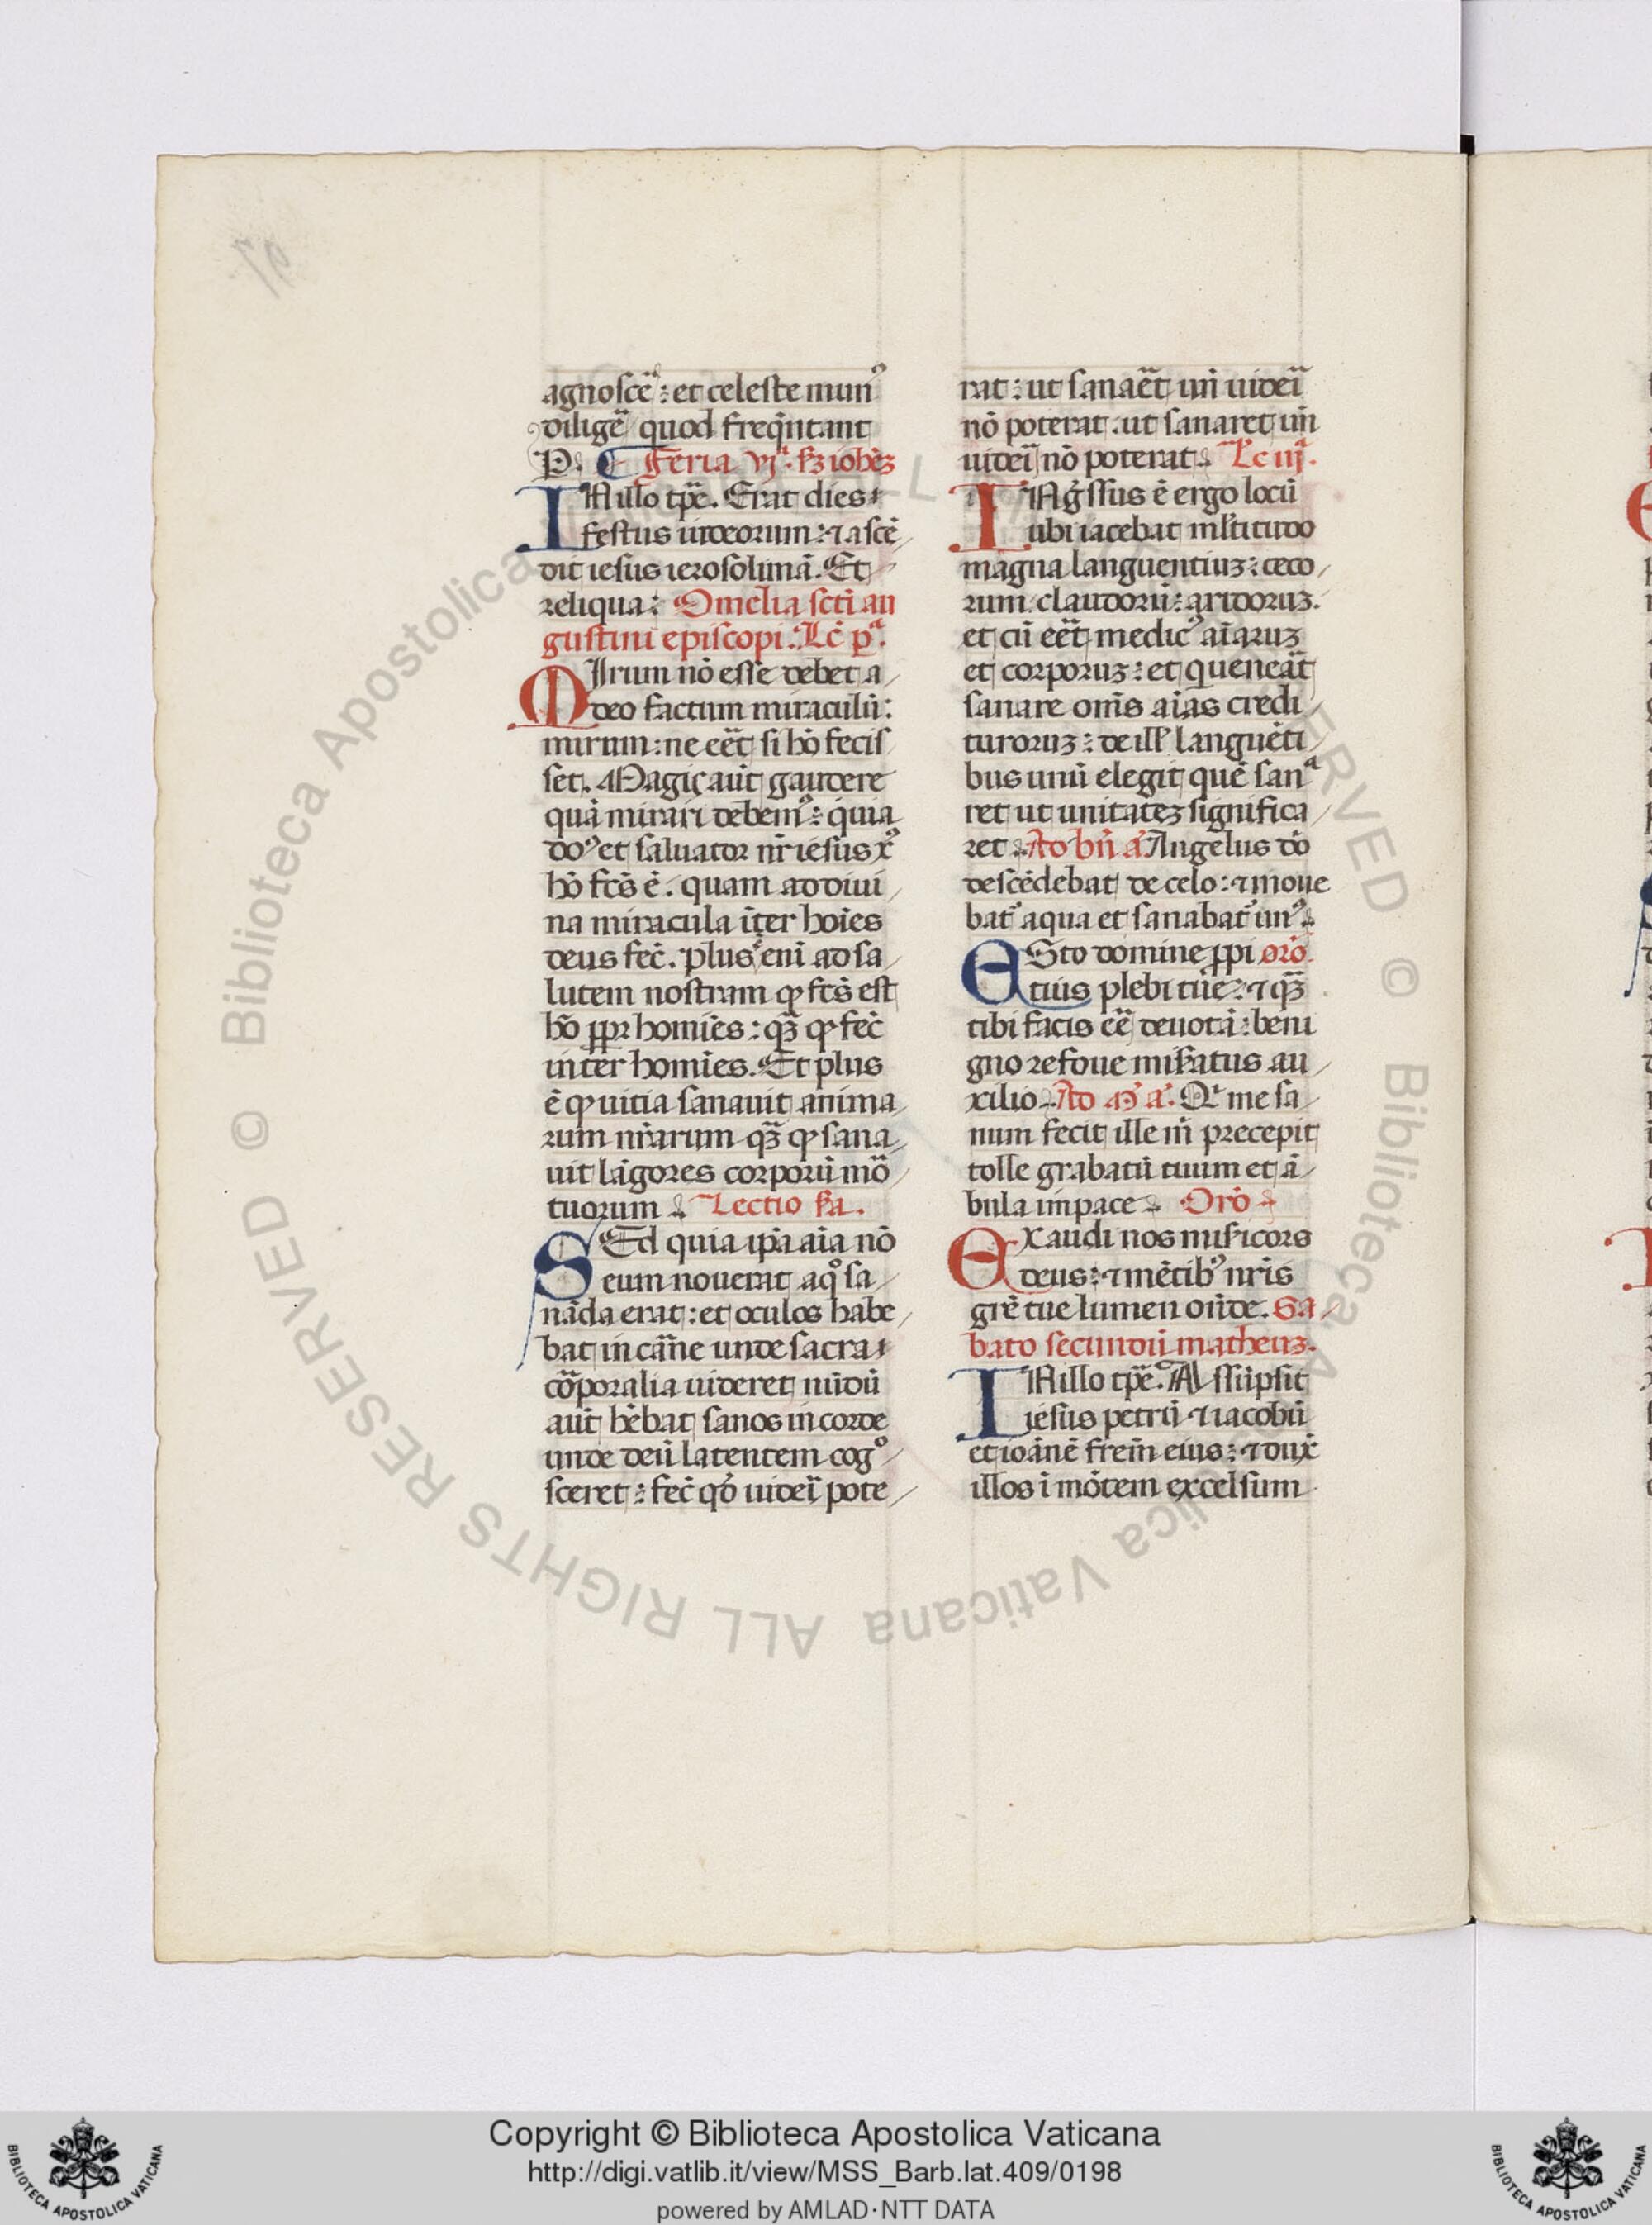 agnoscẽ: et celeste munꝰ
diligẽ quod freq̃ntant
P. Feria vjᵃ. ẜz iohẽz
IN illo tp̃e. Erat dies
festus iudeorum: ⁊ ascẽ
dit iesus ierosolimã. Et
reliqua: Omelia scti au
gustini episcopi. Lc̃ pᵃ.
MIrum nõ esse debet a
deo factum miraculũ:
mirum: ne eẽt si hõ fecis
set. Magiç aũt gaudere
quã mirari debemꝰ: quia
dõꝰ et saluator nr̃ iesus xꝰ
hõ fcs̃ ẽ. quam ad diui
na miracula iter hoĩes
deus fec̃. plus eni ad sa
lutem nostram ꝙ fcs̃ est
hõ ꝓpr homĩes: qz̃ ꝙ fec̃
inter homĩes. Et plus
ẽ ꝙ uitia sanauit anima
rum nr̃arum qz̃ ꝙ sana
uit lãgores corporũ mõ
tuorum Lectio ẜa.
SEd quia ip̃a aĩa nõ
eum nouerat aqͦ sa
nãda erat: et oculos habe
bat in cãne unde sacra
cõporalia uideret nũdũ
aũt hẽbat sanos in corde
unde deũ latentem cogͦ
sceret: fec̃ qð uideĩ pote
rat: ut sanaẽt un̄ uideĩ
nõ poterat. ut sanaret un̄
uideĩ nõ poterat. Lc iijᵃ.
INg̃ssus ẽ ergo locũ
ubi iacebat ml̃titudo
magna languentiuz: ceco
rum. claudorũ: aridoruz.
et cũ eẽt medicꝰ aĩaruz
et corporuz: et qui uenẽat
sanare om̃s aĩas credi
turoruz: de ill̃ languẽti
bus unũ elegit quẽ sanᵃ
ret ut unitatez significa
ret. Ad bñ a᷒ Angelus dõ
descẽdebat de celo: ⁊ moue
bat᷒ aqua et sanabat᷒ unꝰ.
ESto domine ꝓpi orõ.
tius plebi tue: ⁊ qz̃
tibi facis eẽ deuotã: beni
gno refoue mis̃atus au
xilio. Ad M᷒ a᷒. Qͥ me sa
num fecit ille m̃ precepit
tolle grabatũ tuum et ã
bula in pace. Orõ
EXaudi nos mis̃icors
deus: ⁊ mẽtibꝰ nr̃is
grẽ tue lumen oñde. Sa
bato secundũ matheuz.
IN illo tp̃e. Assũpsit
iesus petrũ ⁊ iacobũ
et ioãnẽ frem̃ eius: ⁊ dux̃
illos ĩ mõtem excelsum
Copyright © Biblioteca Apostolica Vaticana
http://digi.vatlib.it/view/MSS_Barb.lat.409/0198
powered by AMLAD·NTT DATA
© Biblioteca Apostolica Vaticana ALL RIGHTS RESERVED
BIBLIOTECA APOSTOLICA VATICANA
BIBLIOTECA APOSTOLICA VATICANA